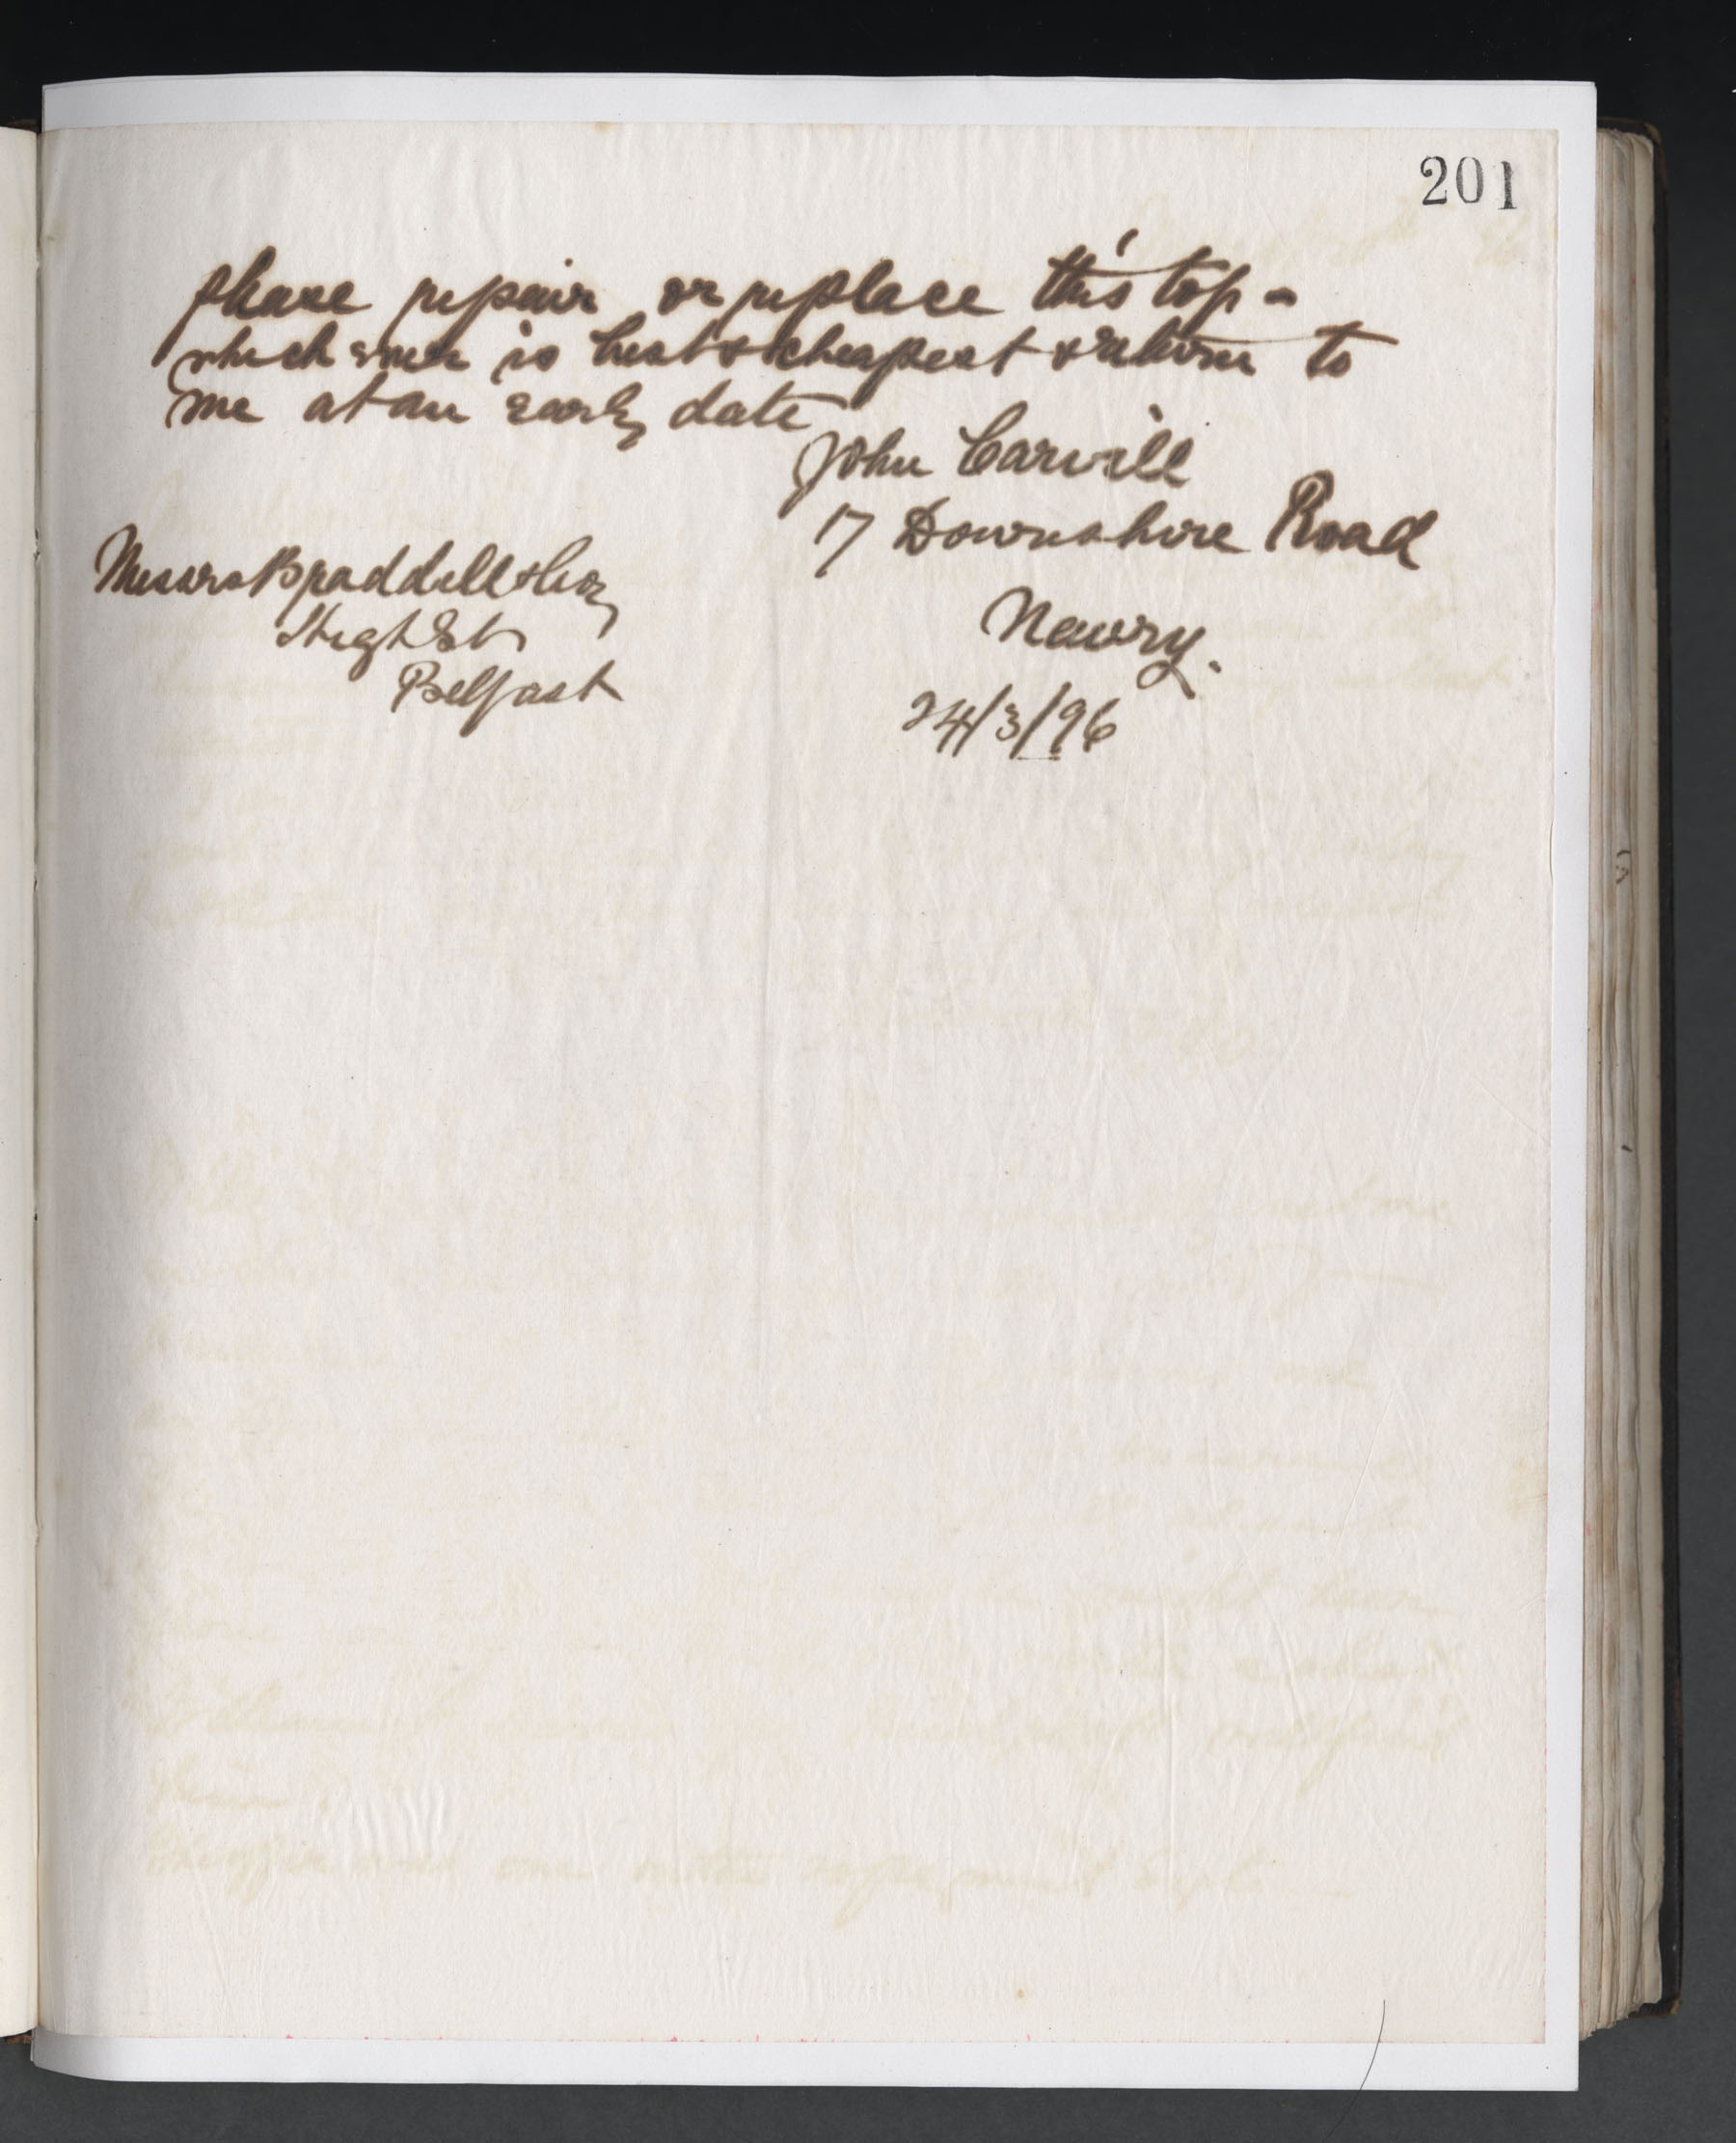 201
please repair or replace this top -
which ever is best & cheapest & return to
me at an early date
John Carvill
17 Downshire Road
Newry.
24/3/96
Messrs Braddell & Coy
High St
Belfast